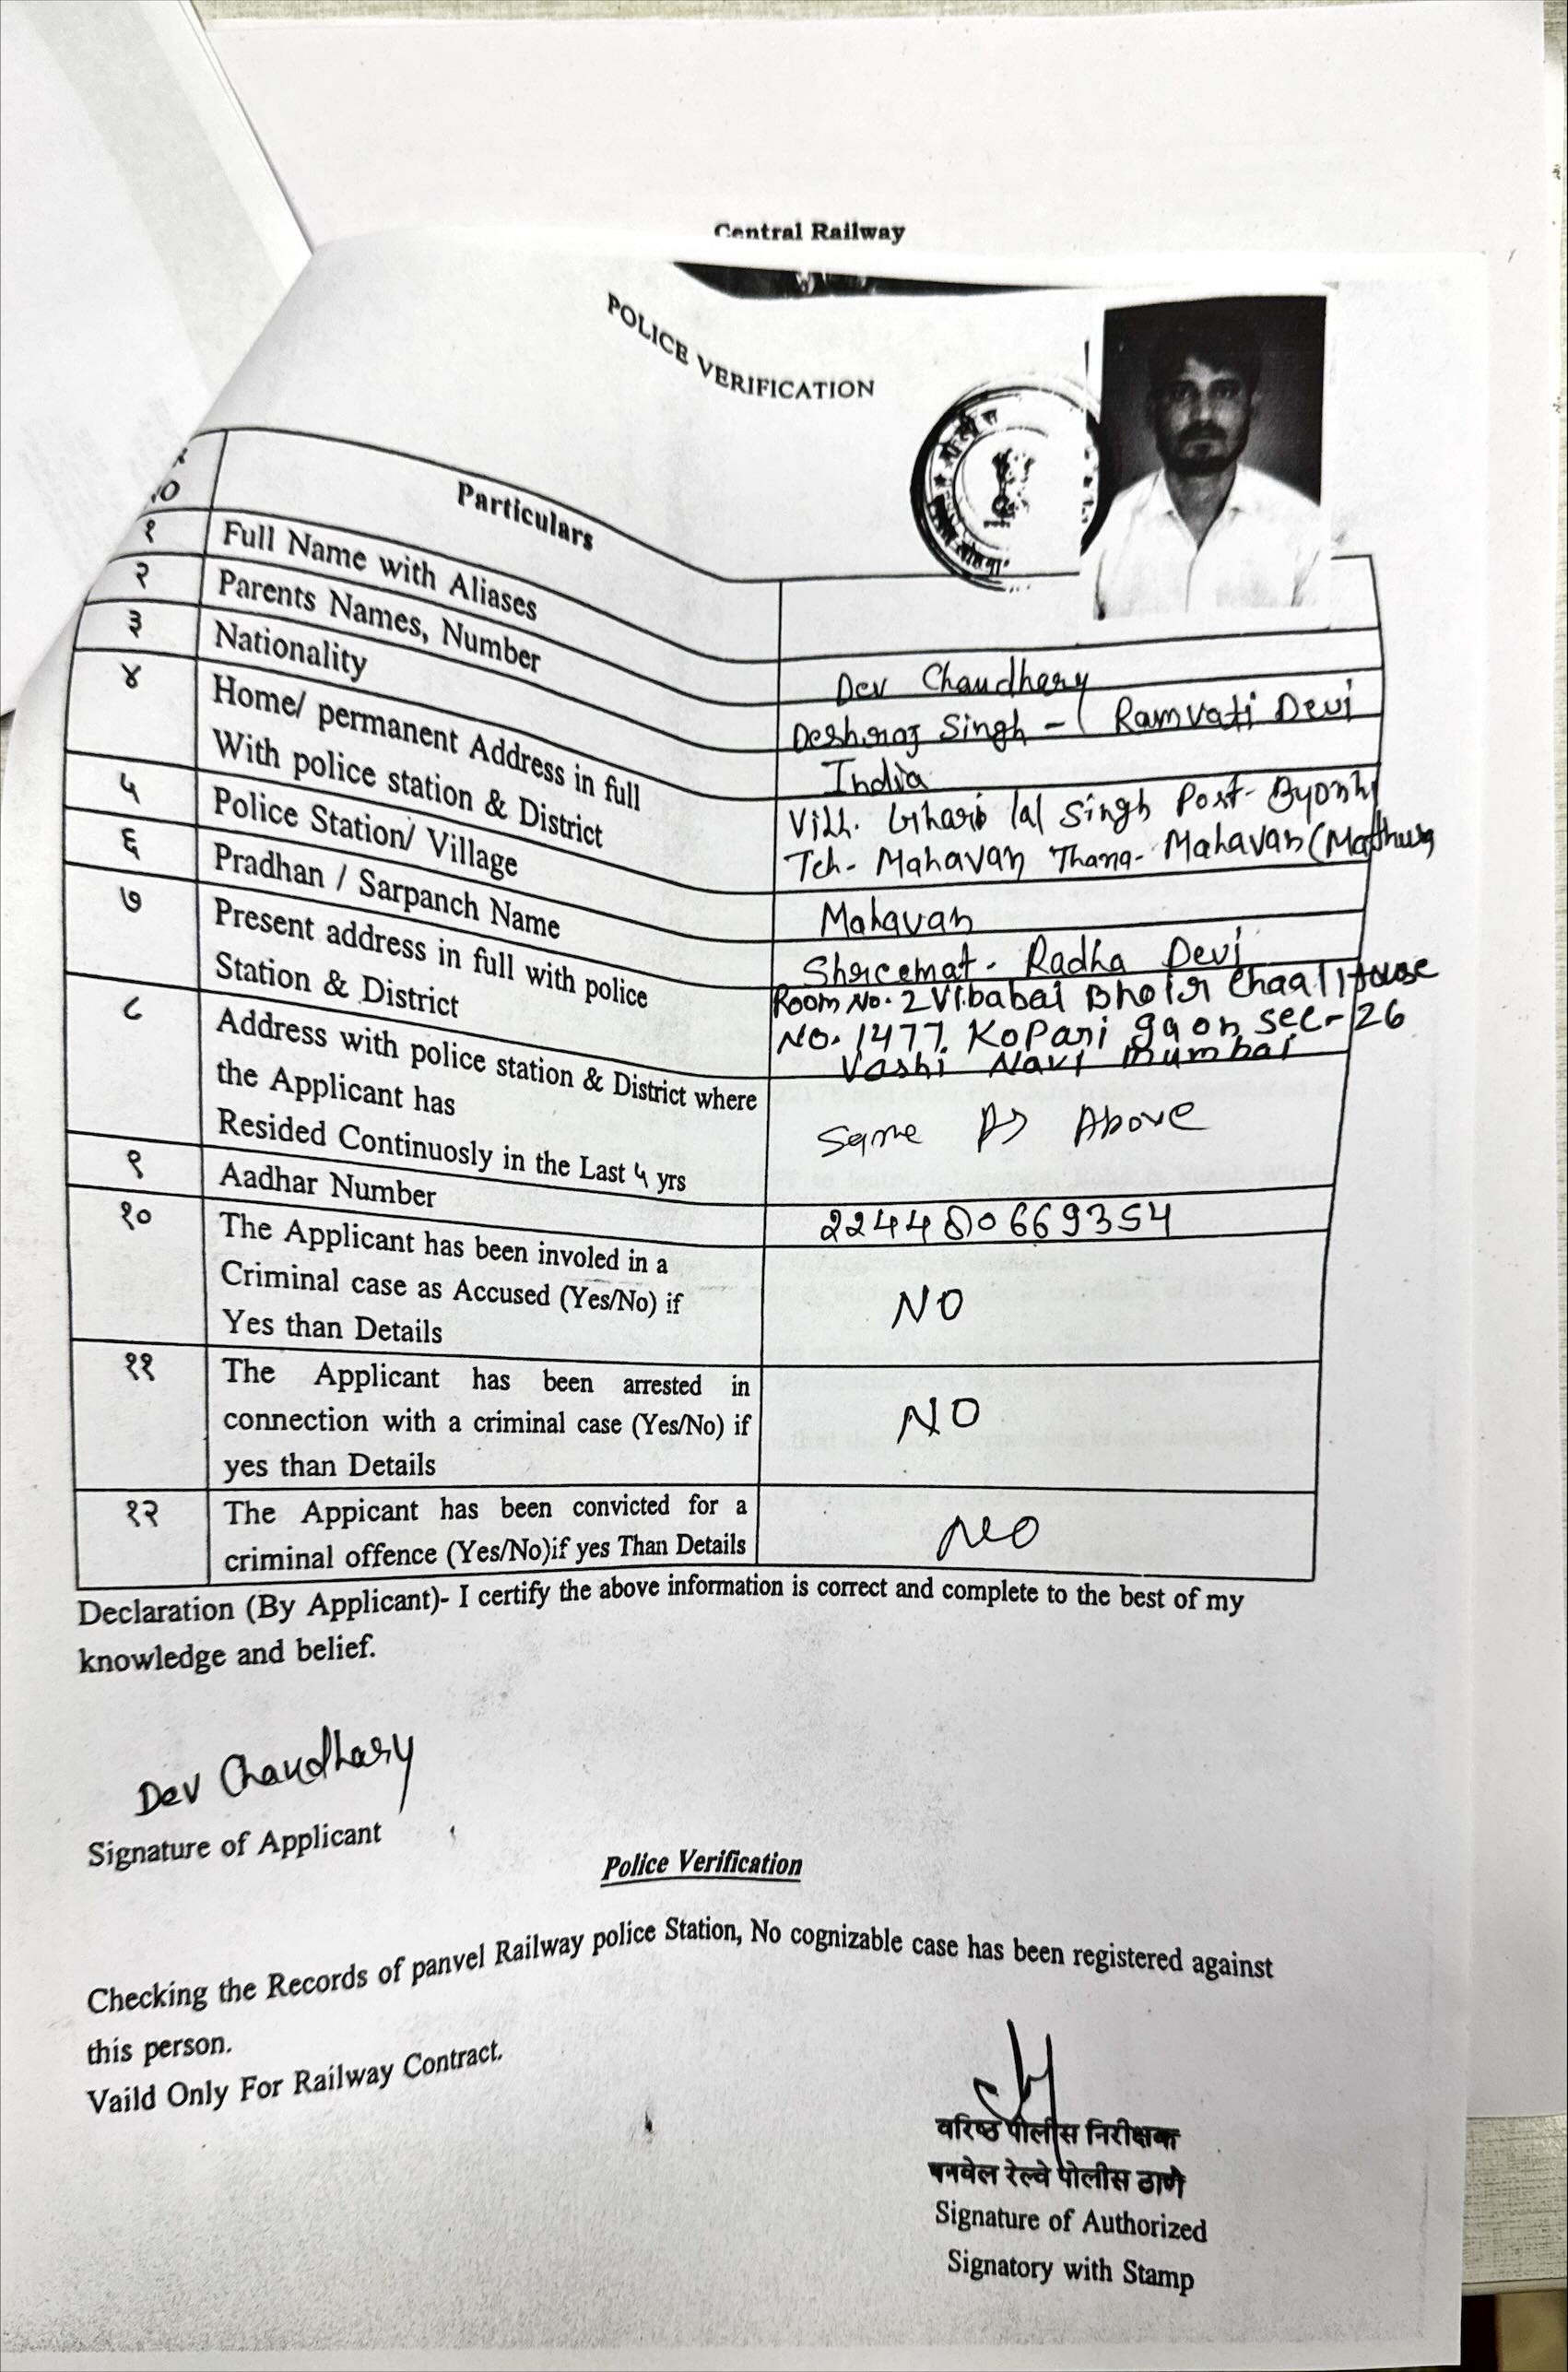 Central Railway
POLICE VERIFICATION
Particulars
१ Full Name with Aliases Dev Chaudhary
२ Parents Names, Number Deshraj Singh - Ramvati Devi
३ Nationality India
४ Home/ permanent Address in full Vill. lal Singh Post-
With police station & District Teh- Mahavan Thana- Mahavan (Mathura
५ Police Station/ Village Mahavan
६ Pradhan / Sarpanch Name Radha Devi
७ Present address in full with police Room No. 2 Vibabai Bhoir Chaal House
Station & District No. 1477. Kopari gaon sec-26
Vashi Navi mumbai
८ Address with police station & District where
the Applicant has Same As Above
Resided Continuosly in the Last ५ yrs
९ Aadhar Number
१० The Applicant has been involed in a
Criminal case as Accused (Yes/No) if NO
Yes than Details
११ The Applicant has been arrested in
connection with a criminal case (Yes/No) if NO
yes than Details
१२ The Appicant has been convicted for a
criminal offence (Yes/No)if yes Than Details NO
Declaration (By Applicant)- I certify the above information is correct and complete to the best of my
knowledge and belief.
Dev Chaudhary
Signature of Applicant
Police Verification
Checking the Records of panvel Railway police Station, No cognizable case has been registered against
this person.
Vaild Only For Railway Contract.
वरिष्ठ पोलीस निरीक्षक
पनवेल रेल्वे पोलीस ठाणे
Signature of Authorized
Signatory with Stamp